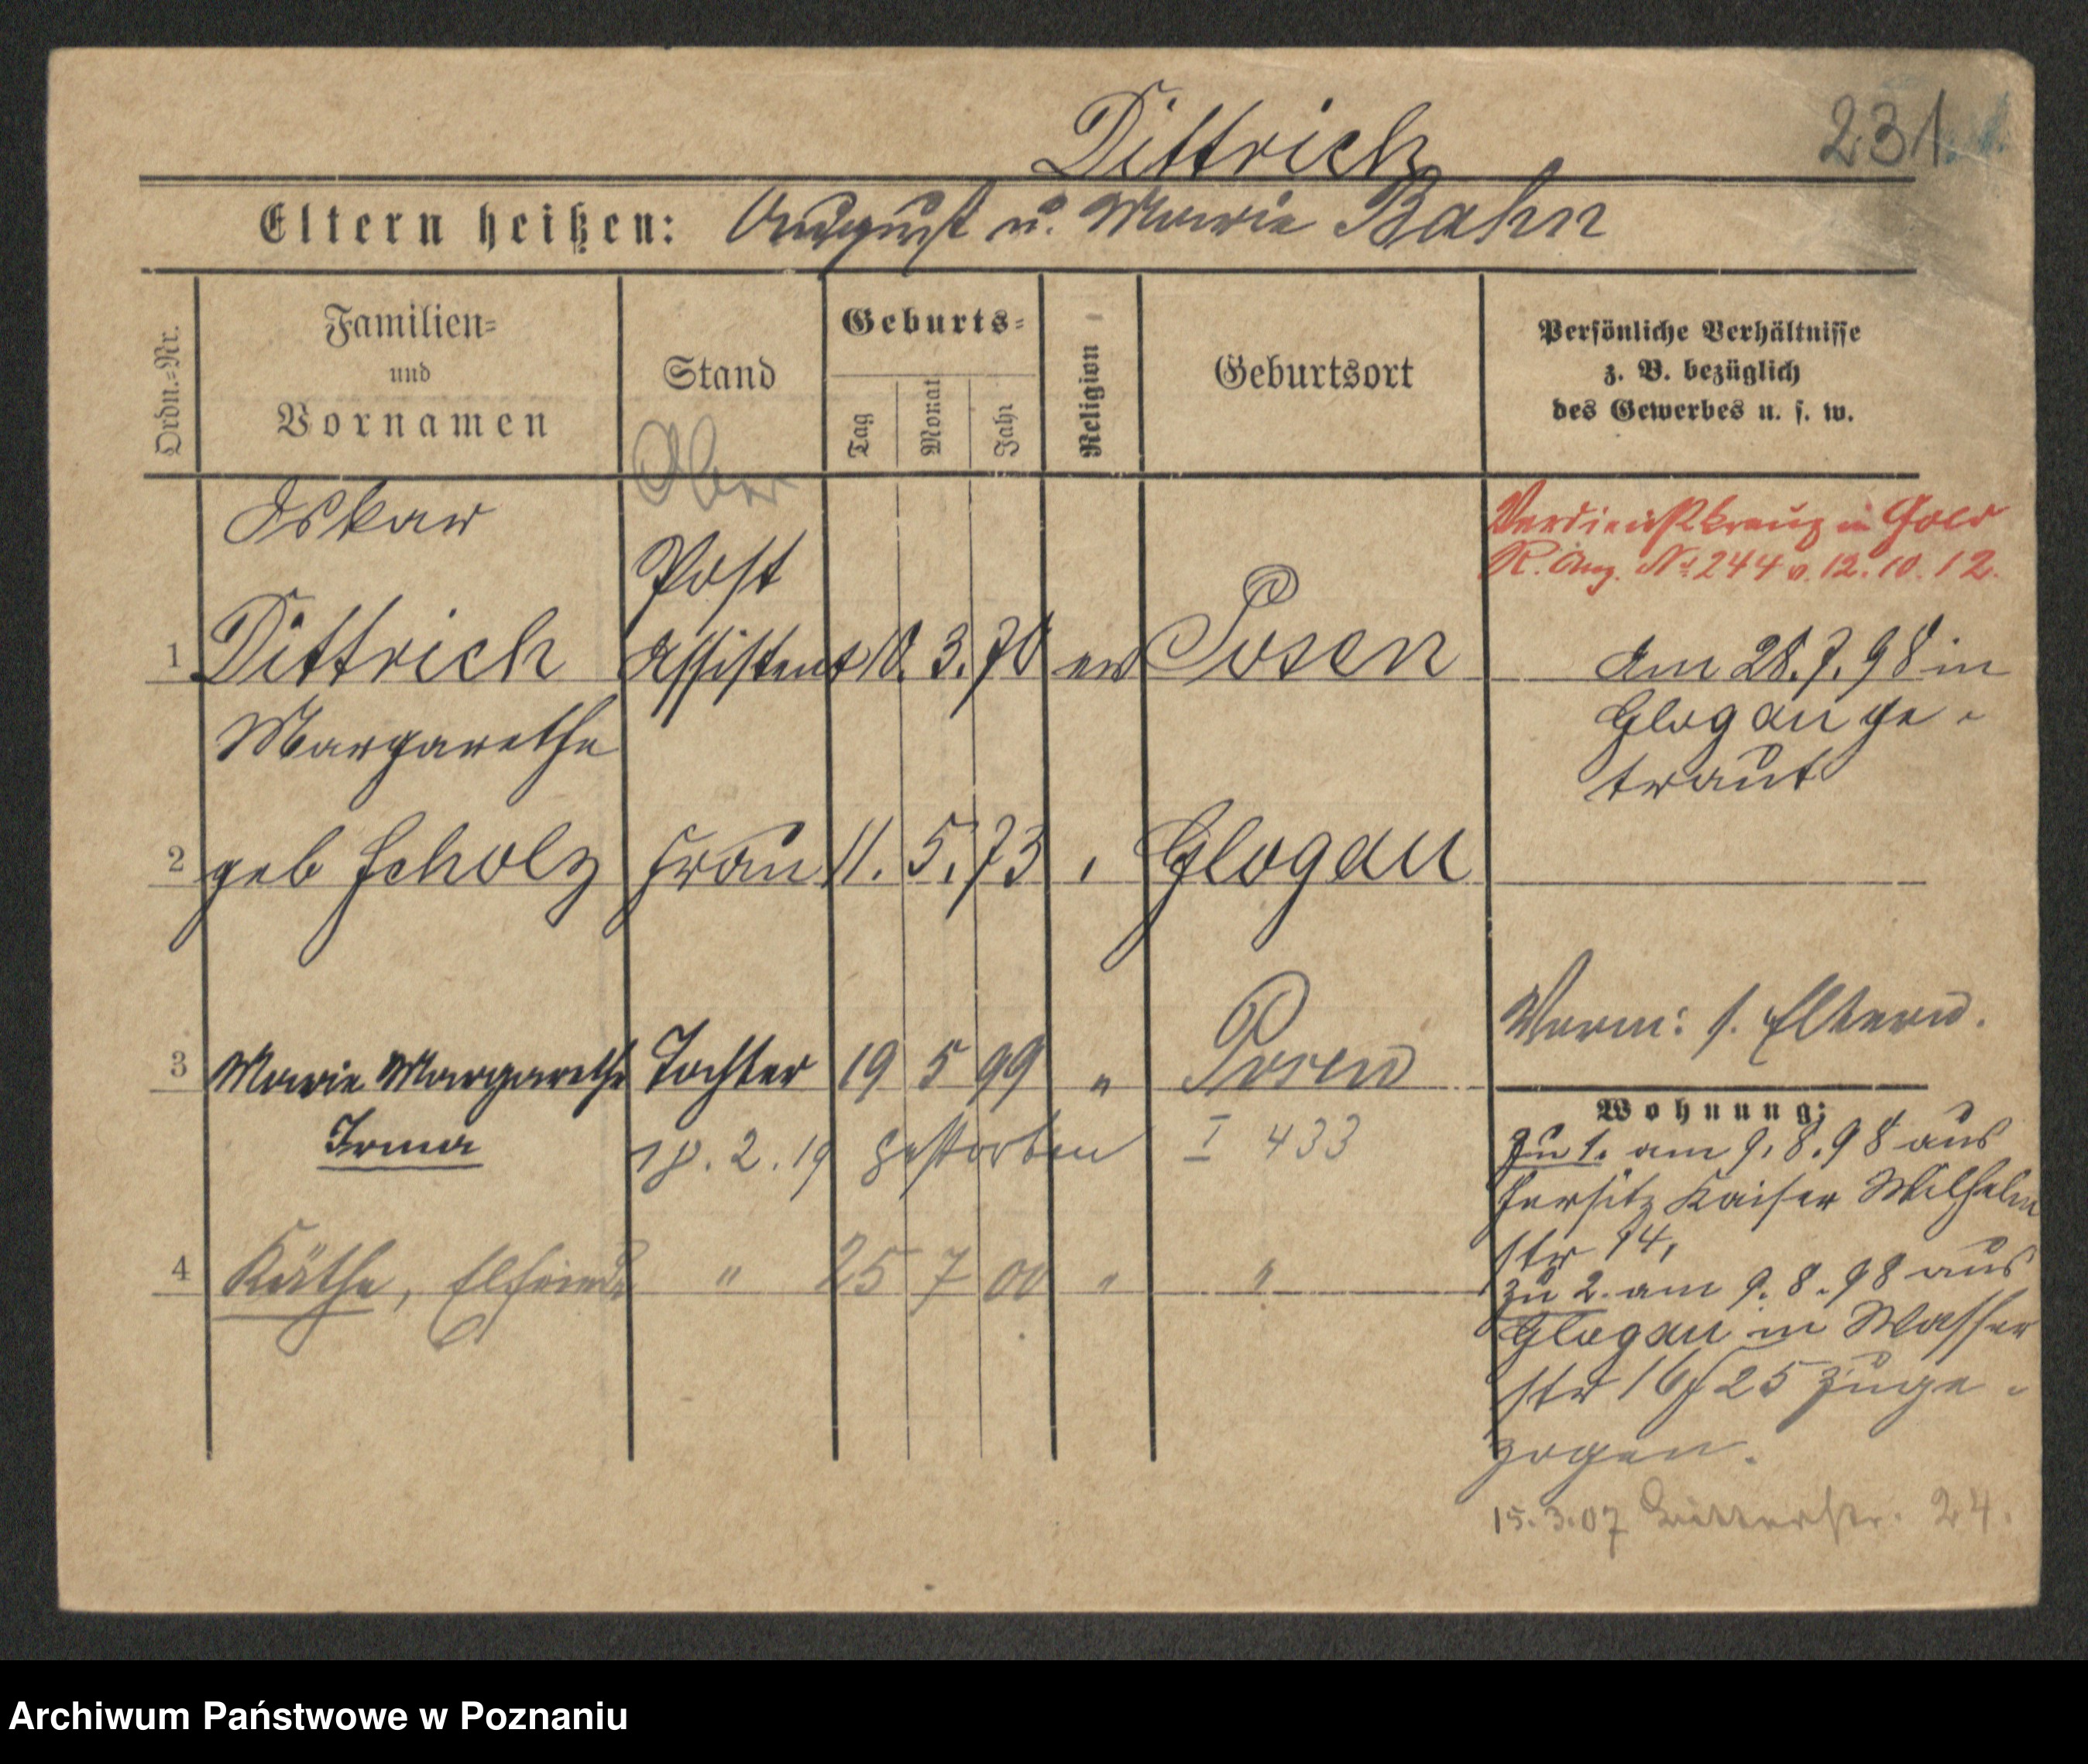 Dittrich
231.
Eltern heißen: August u. Marie Bahn
Ordn.=Nr.
Familien=
und
Vornamen
Stand
Geburts=
Tag
Monat
Jahr
Religion
Geburtsort
Persönliche Verhältnisse
z. B. bezüglich
des Gewerbes u. s. w.
Ober
Oskar
Verdienstkreuz in Gold
R. Anz. No 244 v. 12. 10. 12.
Post
1 Dittrich Assistent 10. 3. 70 ev Posen Am 28.7.98 in
Glogau ge-
Margarethe
traut
2 geb Scholz Frau 11. 5. 73 " Glogau
Verm: s. Eltern.
3 Marie Margarethe Tochter 19 5 99 " Posen
Irma
18. 2. 19 gestorben I 433
4 Käthe, Elfriede " 25 7 00 " "
Wohnung:
Zu 1. am 9.8.98 aus
Jersitz Kaiser Wilhelm
str 14,
zu 2. am 9.8.98 aus
Glogau in Wasser
str 16/25 zuge-
zogen.
15.3.07 Ritterstr. 24.
Archiwum Państwowe w Poznaniu